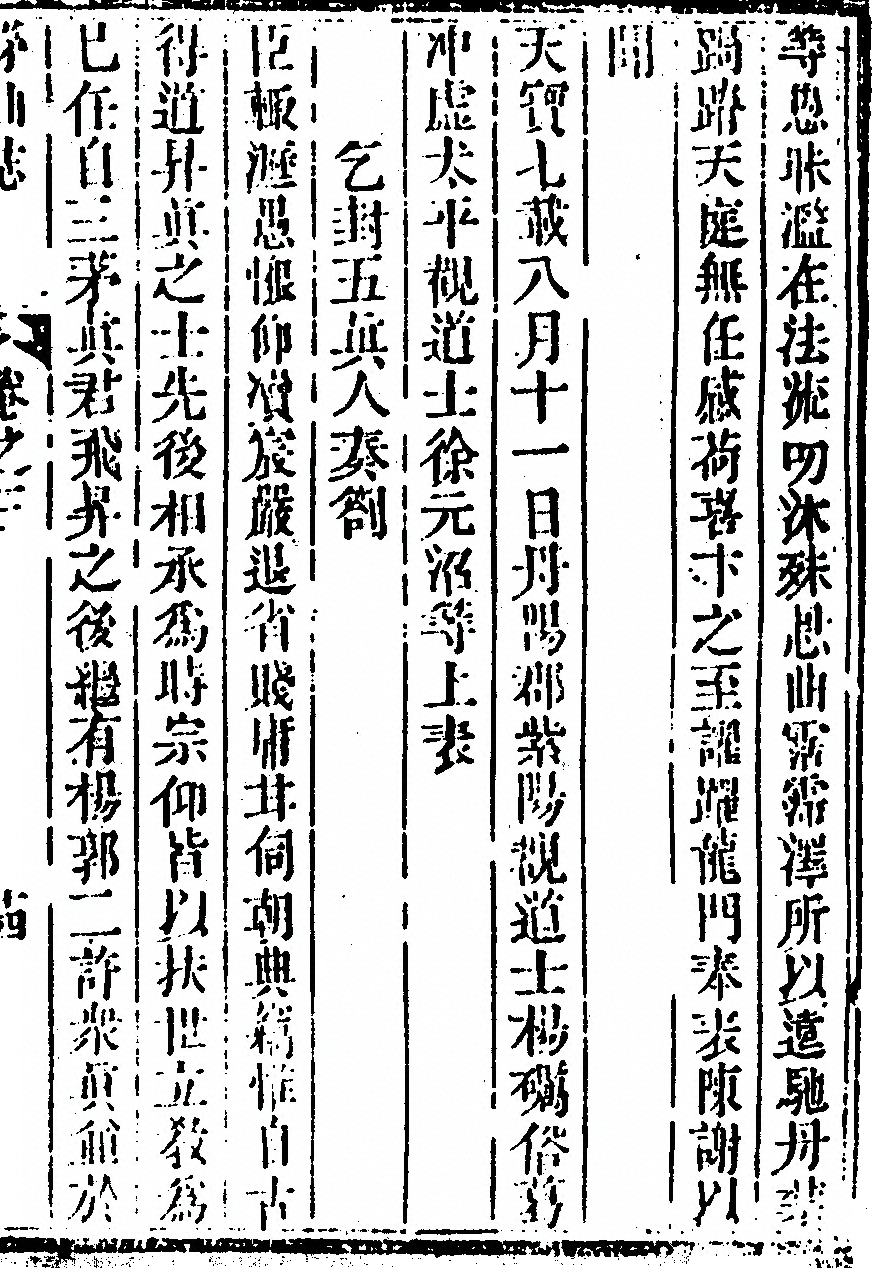 等愚昧濫在法流叨沐殊恩曲霑霈澤所以遠馳丹
跼蹐天庭無任感荷喜卞之至謹躍龍門奉表陳謝以
聞
天寶七載八月十一日丹陽郡紫陽觀道士楊
冲虛太平觀道士徐元沼等上表
乞封五真人奏劄
臣輒瀝愚懷仰瀆宸嚴退省賤庸甘伺朝典竊惟自古
得道昇真之士先後相承為時宗仰皆以扶世立教為
已任自三茅真君飛昇之後繼有楊郭二許衆真俞於
茅山志
卷之